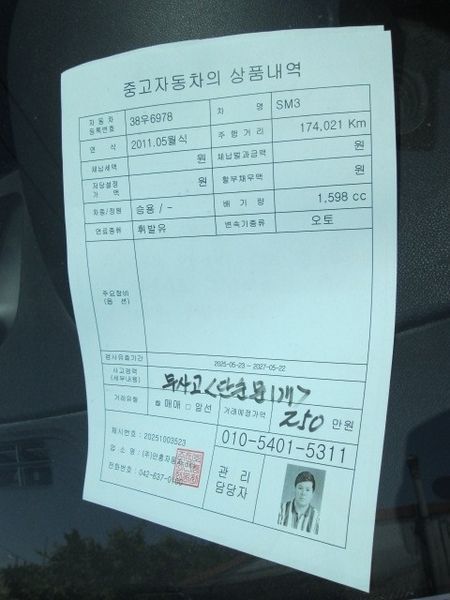 중고자동차의 상품내역
자동차등록번호 38우6978 차 명 SM3
연 식 2011.05월식 주행거리 174,021 Km
체납세액 원 체납범과금액 원
저당설정가액 원 할부채무액 원
차종/정원 승용 / - 배 기 량 1,598 cc
연료종류 휘발유 변속기종류 오토
주요장비(옵 션)
검사유효기간 2025-05-23 ~ 2027-05-22
사고경력(세부내용) 무사고<단순문1개>
거래유형 매매 □ 알선 거래예정가액 250 만원
제시번호 : 20251003523
업 소 명 : (주)
전화번호 : 042-637-
관 리
담당자
010-5401-5311